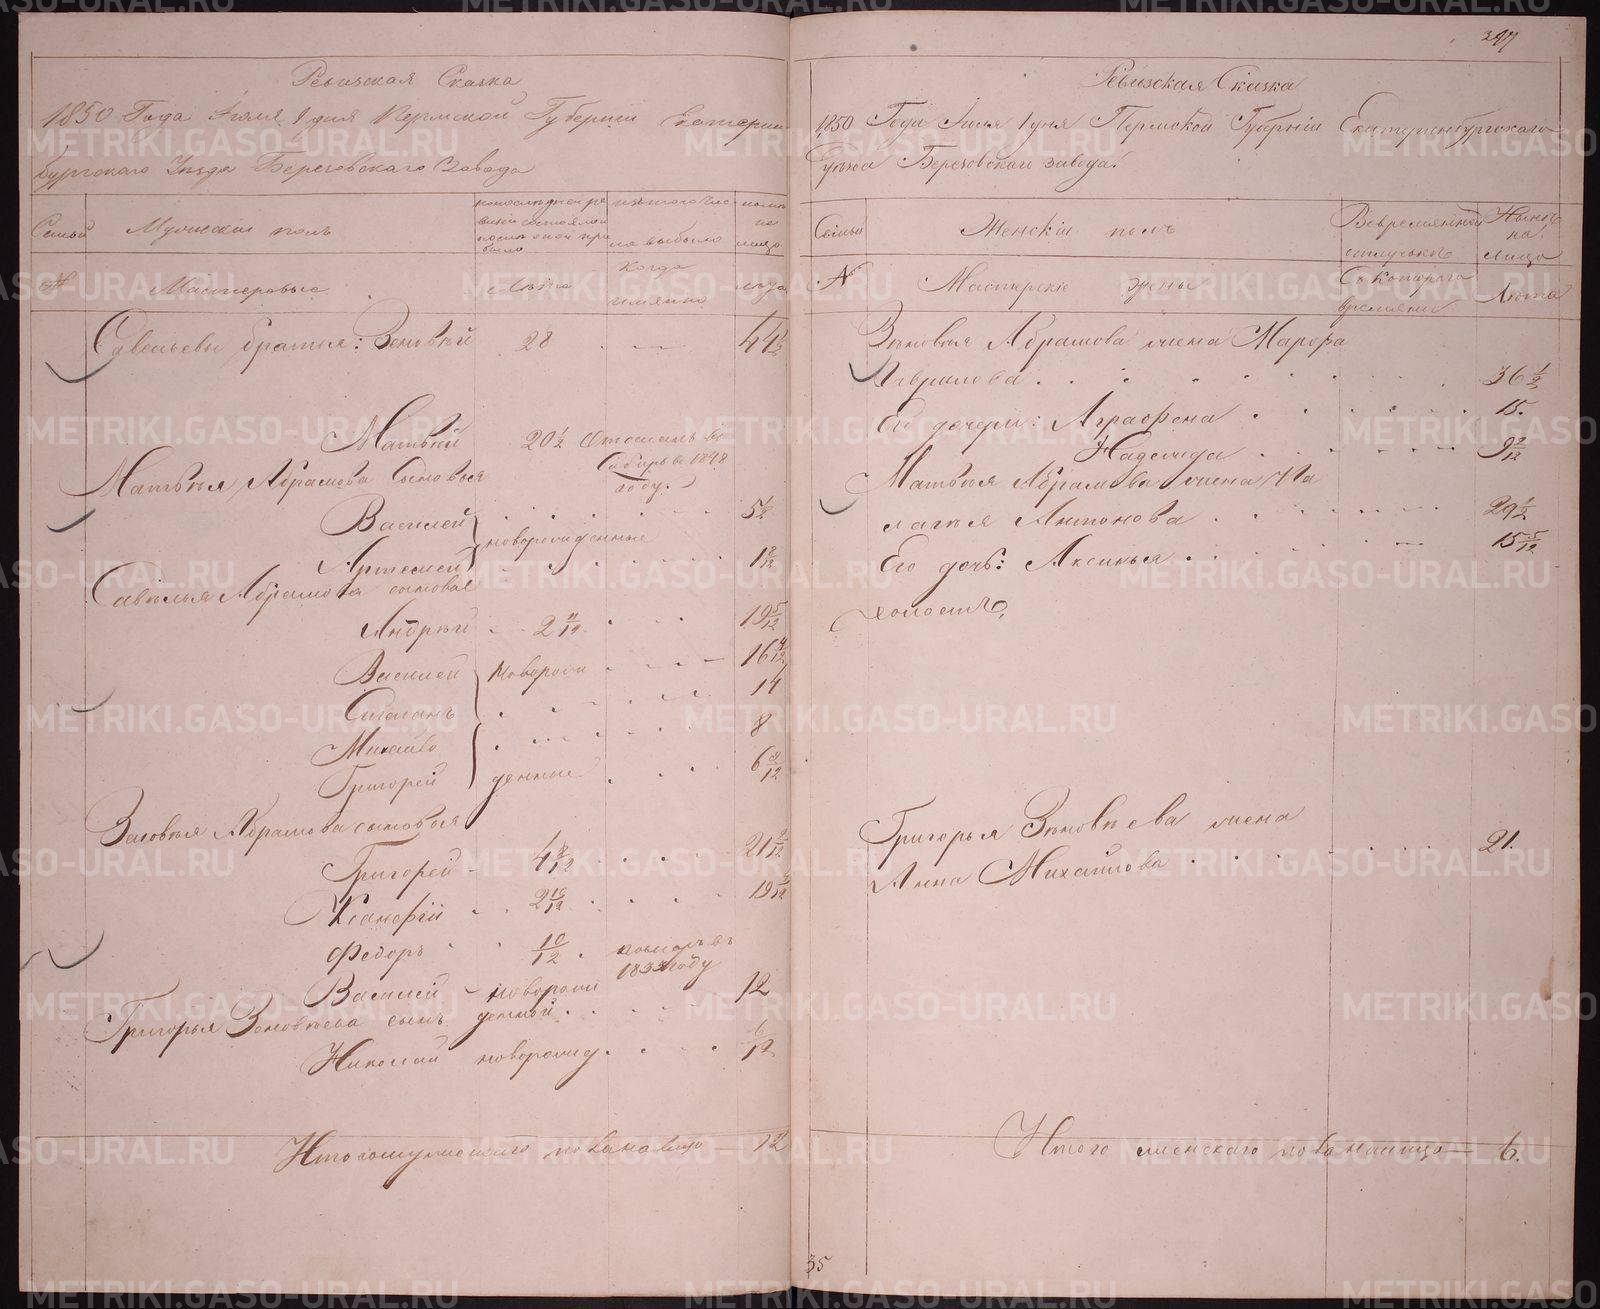 Ревизская Сказка
1850 Года Июля 1 дня Пермской Губернии Екатерин
бургскаго Уезда Березовскаго Завода
Семьи
Мужеский полъ
изтого чис
ла выбыло
на
лицо
№
Мастеровые
Лета
когда
имянно
лета
Савельевы братья: Зеновей 28 44 1/2
Матвей 20 1/2 Отосланъ в
Сибирь в 1848
году.
Матвея Абрамова Сыновья
Василей 5 1/2
новорожденные
Артемей
Савелья Абрамова сыновья
Андрей 2 11/12 19 5/12
Василей новорож 16 4/12
Степанъ 14
Михайло 8
Григорей денные 6
Зеновея Абрамова сыновья
Григорей 4 21
Ксанофий 2 10/12 19
Федоръ 10/12 померъ въ
1833 году
Василей - новорож 12
Григорья Зеновеева сынъ денной
Николай новорожд 6/12
Итого мужескаго пола налицо 12
347
Ревизская Сказка
1850 Года Июля 1 дня Пермской Губернии Екатеринбургскаго
Уезда Березовскаго завода.
Семьи
Женский полъ
Вовремянной
отлучке
Ныне
на
лицо
№
Мастерские жены
Скотораго
времяни
Лета
Зеновея Абрамова жена Марфа
Гаврилова 36 1/2
Его дочери: Аграфена 15.
Надежда 9 2/12
Матвея Абрамова жена Па
лагея Антонова 29 1/2
Его дочь: Аксинья 15 5/12
холостъ
Григорья Зеновеева жена
Анна Михайлова 21.
Итого женскаго пола налицо 6.
35
METRIKI.GASO-URAL.RU